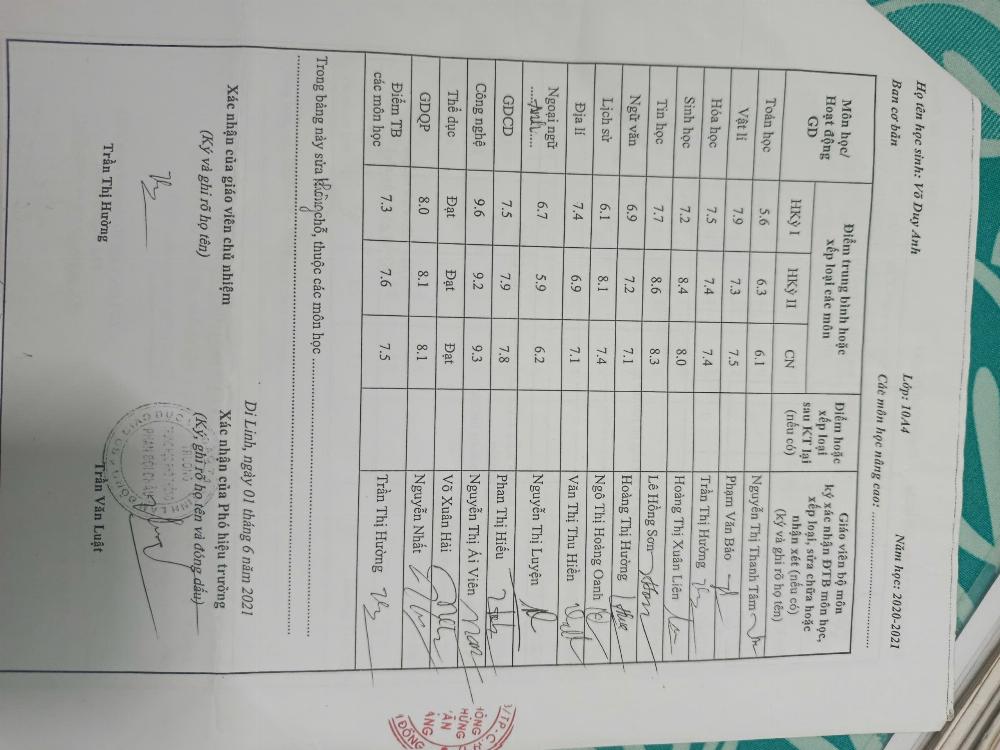 Họ tên học sinh: Võ Duy Anh Lớp: 10A4 Năm học: 2020-2021
Ban cơ bản Các môn học nâng cao: ....................
Môn học/ Hoạt động GD | Điểm trung bình hoặc xếp loại các môn | Điểm hoặc xếp loại sau KT lại (nếu có) | Giáo viên bộ môn ký xác nhận ĐTB môn học, xếp loại, sửa chữa hoặc nhận xét (nếu có) (ký và ghi rõ họ tên)
HKỳ I HKỳ II CN
Toán học 5.6 6.3 6.1 Nguyễn Thị Thanh Tâm
Vật lí 7.9 7.3 7.5 Phạm Văn Bảo
Hóa học 7.5 7.4 7.4 Trần Thị Hường
Sinh học 7.2 8.4 8.0 Hoàng Thị Xuân Liên
Tin học 7.7 8.6 8.3 Lê Hồng Sơn
Ngữ văn 6.9 7.2 7.1 Hoàng Thị Hường
Lịch sử 6.1 8.1 7.4 Ngô Thị Hoàng Oanh
Địa lí 7.4 6.9 7.1 Văn Thị Thu Hiền
Ngoại ngữ ....Anh.... 6.7 5.9 6.2 Nguyễn Thị Luyện
GDCD 7.5 7.9 7.8 Phan Thị Hiếu
Công nghệ 9.6 9.2 9.3 Nguyễn Thị Ái Viên
Thể dục Đạt Đạt Đạt Võ Xuân Hải
GDQP 8.0 8.1 8.1 Nguyễn Nhất
Điểm TB các môn học 7.3 7.6 7.5 Trần Thị Hường
Trong bảng này sửa không chỗ, thuộc các môn học ....................
Di Linh, ngày 01 tháng 6 năm 2021
Xác nhận của giáo viên chủ nhiệm Xác nhận của Phó hiệu trưởng
(Ký và ghi rõ họ tên) (Ký, ghi rõ họ tên và đóng dấu)
Trần Thị Hường Trần Văn Luật